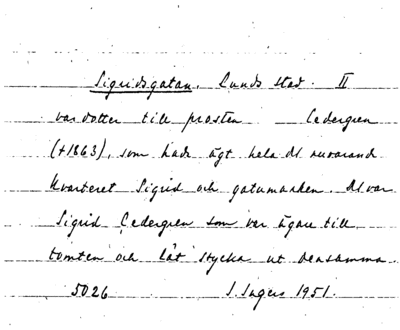 Sigridsgatan. Lunds stad. II
var dotter till prosten Cedergren
(+1863), som hade ägt hela det nuvarande
kvarteret Sigrid och gatumarken. Det var
Sigrid Cedergren som var ägare till
tomten och lät stycka ut densamma.
5026 I. Ingers 1951.